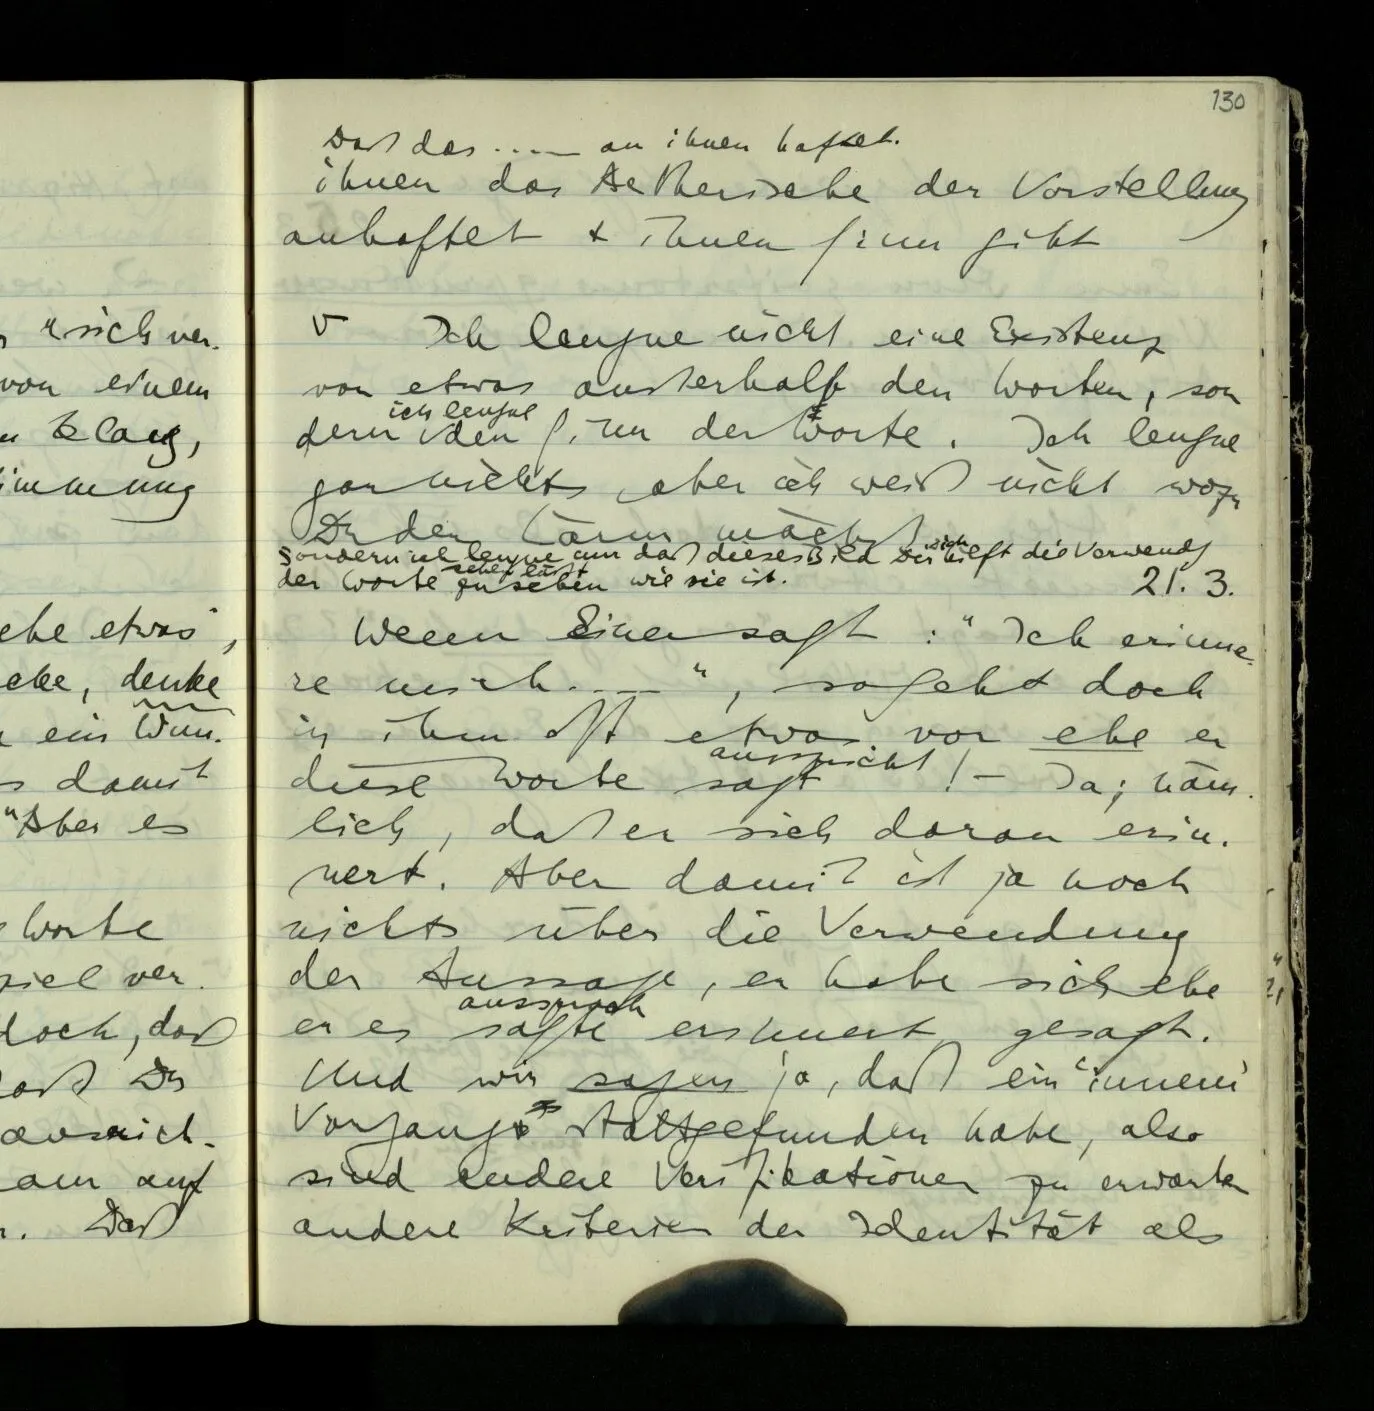 s "sich ver-
von einem
n Klang,
immung
ehe etwas",
cke, denke
ein Wun-
s damit
"Aber es
Worte
spiel ver-
doch, daß
daß Du
ausreich-
am auf
n. Daß
130
Daß das ..... an ihnen haftet.
ihnen das Aetherische der Vorstellung
anhaftet & ihnen Sinn gibt
v Ich leugne nicht eine Existenz
von etwas außerhalb den Worten, son
ich leugne
dern den Sinn der Worte. Ich leugne
gar nichts, aber ich weiß nicht wozu
Du den Lärm machst
sondern ich leugne nur daß dieses Bild Dir hilft die Verwendg
sich
sehen läßt
der Worte zu sehen wie sie ist.
21. 3.
Wenn Einer sagt: "Ich erinne-
re mich ....", so geht doch
in ihm oft etwas vor ehe er
ausspricht
diese Worte sagt! — Ja; näm-
lich, daß er sich daran erin-
nert. Aber damit ist ja noch
nichts über die Verwendung
der Aussage, er habe sich ehe
aussprach
er es sagte erinnert gesagt.
Und wir sagen ja, daß ein "innerer
Vorgang" stattgefunden habe, also
sind andere Verifikationen zu erwarten
andere Kriterien der Identität als